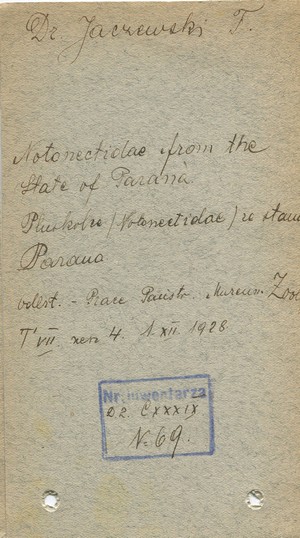 Dr. Jaczewski T.
Notonectidae from the
State of Paraná
Pluskolce (Notonectidae) ze stanu
Parana
odbit. - Prace Państw. Museum Zool
T VII zesz 4. 1. XII. 1928
Nr. inwentarza
DZ. CXXXIX
No 69.